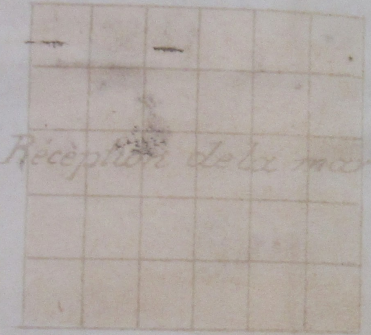 Réception de la mar